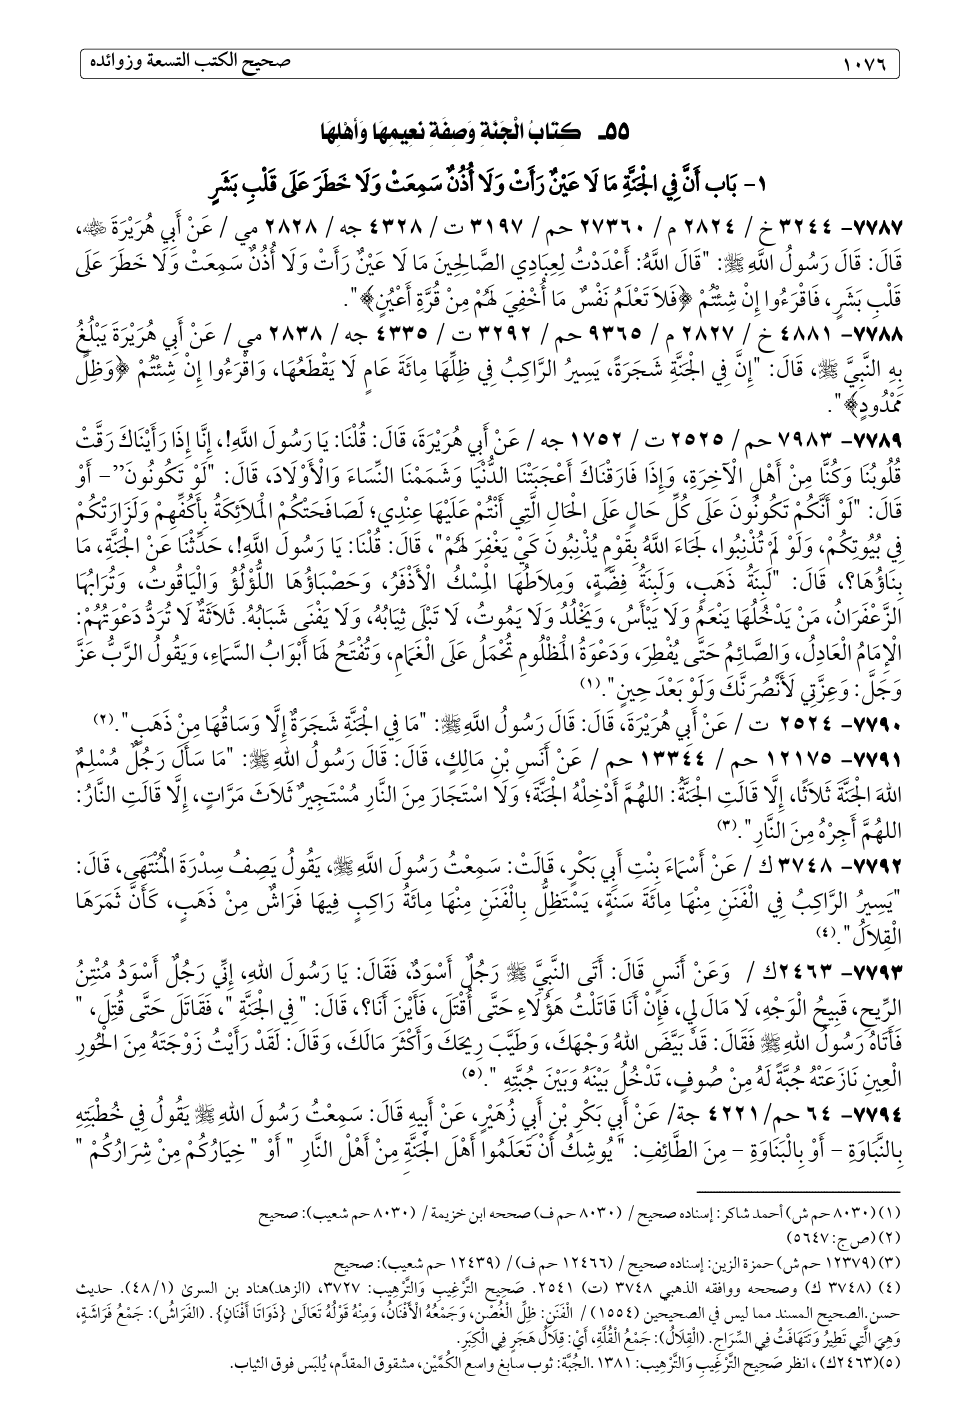 ١٠٧٦
صحيح الكتب التسعة وزوائده
٥٥ـ كِتَابُ الْجَنَّةِ وَصِفَةِ نَعِيمِهَا وَأَهْلِهَا
١- بَاب أَنَّ فِي الْجَنَّةِ مَا لَا عَيْنٌ رَأَتْ وَلَا أُذُنٌ سَمِعَتْ وَلَا خَطَرَ عَلَى قَلْبِ بَشَرٍ
٧٧٨٧- ٣٢٤٤ خ / ٢٨٢٤ م / ٢٧٣٦٠ حم / ٣١٩٧ ت / ٤٣٢٨ جه / ٢٨٢٨ مي / عَنْ أَبِي هُرَيْرَةَ ﵁،
قَالَ: قَالَ رَسُولُ اللَّهِ ﷺ: "قَالَ اللَّهُ: أَعْدَدْتُ لِعِبَادِي الصَّالِحِينَ مَا لَا عَيْنٌ رَأَتْ وَلَا أُذُنٌ سَمِعَتْ وَلَا خَطَرَ عَلَى
قَلْبِ بَشَرٍ، فَاقْرَءُوا إِنْ شِئْتُمْ ﴿فَلاَ تَعْلَمُ نَفْسٌ مَا أُخْفِيَ لَهُمْ مِنْ قُرَّةِ أَعْيُنٍ﴾".
٧٧٨٨- ٤٨٨١ خ / ٢٨٢٧ م / ٩٣٦٥ حم / ٣٢٩٢ ت / ٤٣٣٥ جه / ٢٨٣٨ مي / عَنْ أَبِي هُرَيْرَةَ يَبْلُغُ
بِهِ النَّبِيَّ ﷺ، قَالَ: "إِنَّ فِي الْجَنَّةِ شَجَرَةً، يَسِيرُ الرَّاكِبُ فِي ظِلِّهَا مِائَةَ عَامٍ لَا يَقْطَعُهَا، وَاقْرَءُوا إِنْ شِئْتُمْ ﴿وَظِلٍّ
مَمْدُودٍ﴾".
٧٧٨٩- ٧٩٨٣ حم / ٢٥٢٥ ت / ١٧٥٢ جه / عَنْ أَبِي هُرَيْرَةَ، قَالَ: قُلْنَا: يَا رَسُولَ اللَّهِ!، إِنَّا إِذَا رَأَيْنَاكَ رَقَّتْ
قُلُوبُنَا وَكُنَّا مِنْ أَهْلِ الْآخِرَةِ، وَإِذَا فَارَقْنَاكَ أَعْجَبَتْنَا الدُّنْيَا وَشَمَمْنَا النِّسَاءَ وَالْأَوْلَادَ، قَالَ: "لَوْ تَكُونُونَ"- أَوْ
قَالَ: "لَوْ أَنَّكُمْ تَكُونُونَ عَلَى كُلِّ حَالٍ عَلَى الْحَالِ الَّتِي أَنْتُمْ عَلَيْهَا عِنْدِي؛ لَصَافَحَتْكُمْ الْمَلَائِكَةُ بِأَكُفِّهِمْ وَلَزَارَتْكُمْ
فِي بُيُوتِكُمْ، وَلَوْ لَمْ تُذْنِبُوا، لَجَاءَ اللَّهُ بِقَوْمٍ يُذْنِبُونَ كَيْ يَغْفِرَ لَهُمْ"، قَالَ: قُلْنَا: يَا رَسُولَ اللَّهِ!، حَدِّثْنَا عَنْ الْجَنَّةِ، مَا
بِنَاؤُهَا؟، قَالَ: "لَبِنَةُ ذَهَبٍ، وَلَبِنَةُ فِضَّةٍ، وَمِلَاطُهَا الْمِسْكُ الْأَذْفَرُ، وَحَصْبَاؤُهَا اللُّؤْلُؤُ وَالْيَاقُوتُ، وَتُرَابُهَا
الزَّعْفَرَانُ، مَنْ يَدْخُلُهَا يَنْعَمُ وَلَا يَبْأَسُ، وَيَخْلُدُ وَلَا يَمُوتُ، لَا تَبْلَى ثِيَابُهُ، وَلَا يَفْنَى شَبَابُهُ. ثَلَاثَةٌ لَا تُرَدُّ دَعْوَتُهُمْ:
الْإِمَامُ الْعَادِلُ، وَالصَّائِمُ حَتَّى يُفْطِرَ، وَدَعْوَةُ الْمَظْلُومِ تُحْمَلُ عَلَى الْغَمَامِ، وَتُفْتَحُ لَهَا أَبْوَابُ السَّمَاءِ، وَيَقُولُ الرَّبُّ عَزَّ
وَجَلَّ: وَعِزَّتِي لَأَنْصُرَنَّكَ وَلَوْ بَعْدَ حِينٍ".(١)
٧٧٩٠- ٢٥٢٤ ت / عَنْ أَبِي هُرَيْرَةَ، قَالَ: قَالَ رَسُولُ اللَّهِ ﷺ: "مَا فِي الْجَنَّةِ شَجَرَةٌ إِلَّا وَسَاقُهَا مِنْ ذَهَبٍ".(٢)
٧٧٩١- ١٢١٧٥ حم / ١٣٣٤٤ حم / عَنْ أَنَسِ بْنِ مَالِكٍ، قَالَ: قَالَ رَسُولُ اللهِ ﷺ: "مَا سَأَلَ رَجُلٌ مُسْلِمٌ
اللهَ الْجَنَّةَ ثَلَاثًا، إِلَّا قَالَتِ الْجَنَّةُ: اللهُمَّ أَدْخِلْهُ الْجَنَّةَ؛ وَلَا اسْتَجَارَ مِنَ النَّارِ مُسْتَجِيرٌ ثَلَاثَ مَرَّاتٍ، إِلَّا قَالَتِ النَّارُ:
اللهُمَّ أَجِرْهُ مِنَ النَّارِ".(٣)
٧٧٩٢- ٣٧٤٨ ك / عَنْ أَسْمَاءَ بِنْتِ أَبِي بَكْرٍ، قَالَتْ: سَمِعْتُ رَسُولَ اللَّهِ ﷺ، يَقُولُ يَصِفُ سِدْرَةَ الْمُنْتَهَى، قَالَ:
"يَسِيرُ الرَّاكِبُ فِي الْفَنَنِ مِنْهَا مِائَةَ سَنَةٍ، يَسْتَظِلُّ بِالْفَنَنِ مِنْهَا مِائَةُ رَاكِبٍ فِيهَا فَرَاشٌ مِنْ ذَهَبٍ، كَأَنَّ ثَمَرَهَا
الْقِلاَلُ".(٤)
٧٧٩٣- ٢٤٦٣ك / وَعَنْ أَنَسٍ قَالَ: أَتَى النَّبِيَّ ﷺ رَجُلٌ أَسْوَدٌ، فَقَالَ: يَا رَسُولَ اللهِ، إِنِّي رَجُلٌ أَسْوَدُ مُنْتِنُ
الرِّيحِ، قَبِيحُ الْوَجْهِ، لَا مَالَ لِي، فَإِنْ أَنَا قَاتَلْتُ هَؤُلَاءِ حَتَّى أُقْتَلَ، فَأَيْنَ أَنَا؟، قَالَ: " فِي الْجَنَّةِ "، فَقَاتَلَ حَتَّى قُتِلَ، "
فَأَتَاهُ رَسُولُ اللهِ ﷺ فَقَالَ: قَدْ بَيَّضَ اللهُ وَجْهَكَ، وَطَيَّبَ رِيحَكَ وَأَكْثَرَ مَالَكَ، وَقَالَ: لَقَدْ رَأَيْتُ زَوْجَتَهُ مِنَ الْحُورِ
الْعِينِ نَازَعَتْهُ جُبَّةً لَهُ مِنْ صُوفٍ، تَدْخُلُ بَيْنَهُ وَبَيْنَ جُبَّتِهِ ".(٥)
٧٧٩٤- ٦٤ حم/ ٤٢٢١ جة/ عَنْ أَبِي بَكْرِ بْنِ أَبِي زُهَيْرٍ، عَنْ أَبِيهِ قَالَ: سَمِعْتُ رَسُولَ اللهِ ﷺ يَقُولُ فِي خُطْبَتِهِ
بِالنَّبَاوَةِ – أَوْ بِالْبَنَاوَةِ – مِنَ الطَّائِفِ: " يُوشِكُ أَنْ تَعَلَمُوا أَهْلَ الْجَنَّةِ مِنْ أَهْلِ النَّارِ " أَوْ " خِيَارُكُمْ مِنْ شِرَارُكُمْ "
(١) (٨٠٣٠ حم ش) أحمد شاكر: إسناده صحيح / (٨٠٣٠ حم ف) صححه ابن خزيمة / (٨٠٣٠ حم شعيب): صحيح
(٢) (ص ج: ٥٦٤٧)
(٣) (١٢٣٧٩ حم ش) حمزة الزين: إسناده صحيح / (١٢٤٦٦ حم ف)/ (١٢٤٣٩ حم شعيب): صحيح
(٤) (٣٧٤٨ ك) وصححه ووافقه الذهبي ٣٧٤٨ (ت) ٢٥٤١. صَحِيح التَّرْغِيبِ وَالتَّرْهِيب: ٣٧٢٧، (الزهد)هناد بن السرى (٤٨/١). حديث
حسن.الصحيح المسند مما ليس في الصحيحين (١٥٥٤) / الْفَنَنِ: ظِلِّ الْغُصْن، وَجَمْعُهُ الْأَفْنَانُ، وَمِنْهُ قَوْلُهُ تَعَالَى {ذَوَاتَا أَفْنَانٍ}. (الفَرَاشُ): جَمْعُ فَرَاشَةٍ،
وَهِيَ الَّتِي تَطِيرُ وَتَتَهَافَتُ فِي السِّرَاجِ. (الْقِلَالُ): جَمْعُ الْقُلَّةِ، أَيْ: قِلَالُ هَجَرٍ فِي الْكِبَرِ.
(٥) (٢٤٦٣ك) ، انظر صَحِيح التَّرْغِيبِ وَالتَّرْهِيب: ١٣٨١ .الجُبَّة: ثوب سابغ واسع الكُمَّيْن، مشقوق المقدَّم، يُلبَس فوق الثياب.